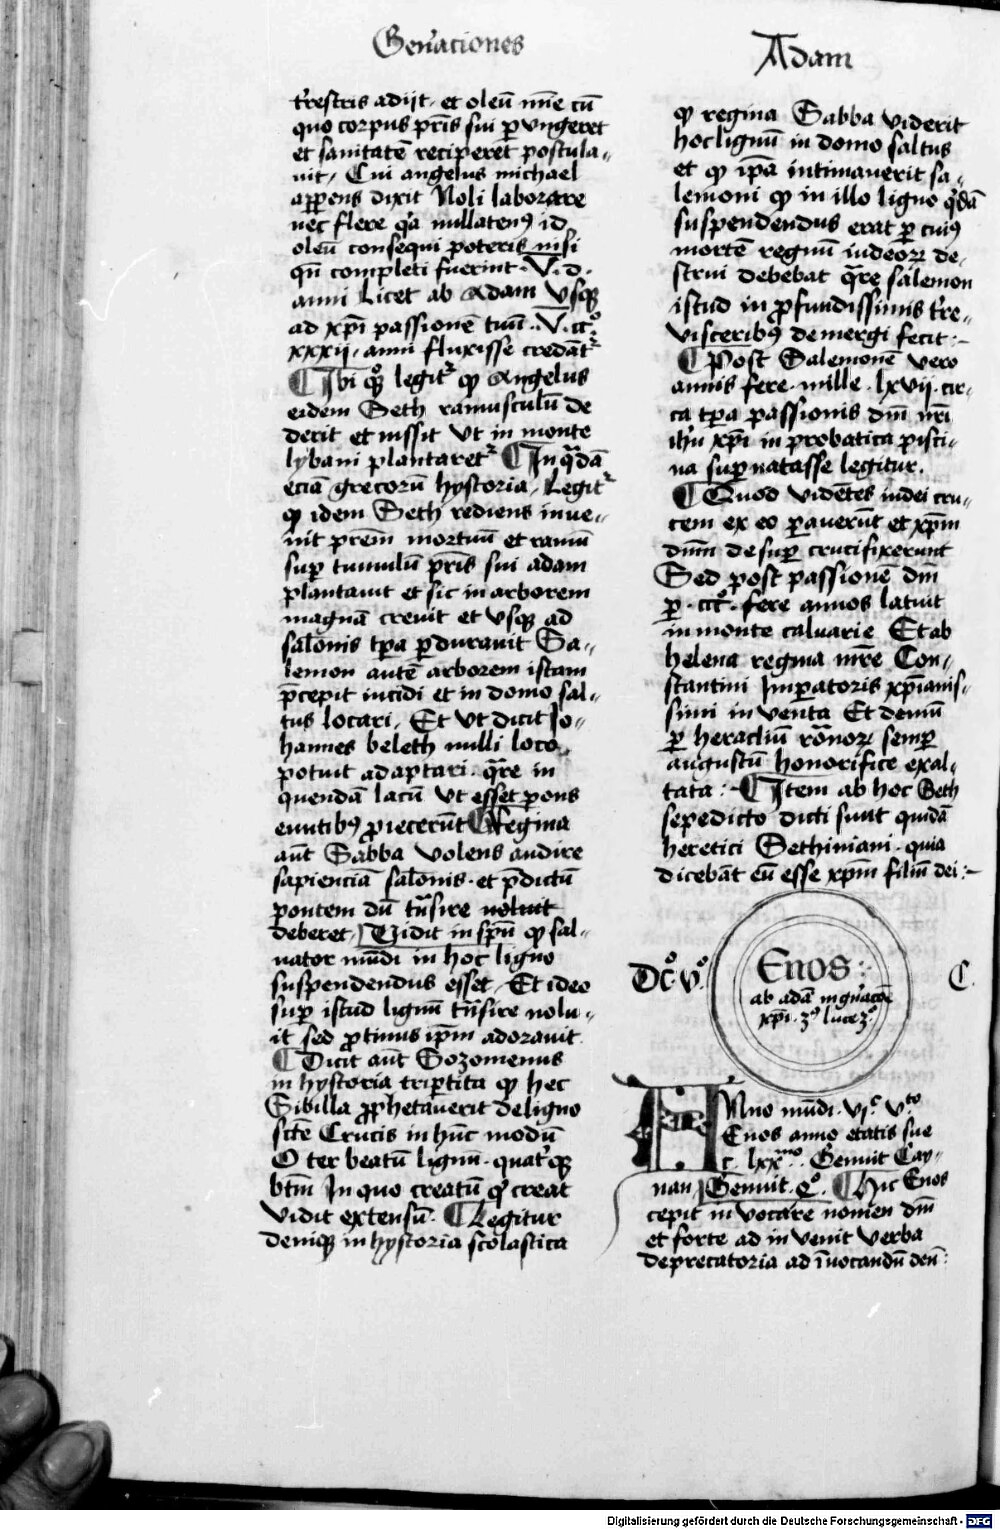 Gen̄aciones
Adam
t̄restris adijt · et oleū mīe cū
quo corpus pr̄is sui ꝑungeret
et sanitatē reciperet postula-
uit / Cui angelus michael
apꝑens dixit Noli laborare
nec flere q̄a nullatenꝰ id
oleū consequi poteris nisi
qn̄ completi fuerint · V · d ·
anni Licet ab Adam vsqꝫ
ad xp̄i passionē tm̄ · V · cc ·
xxxij · anni fluxisse credāt᷑
¶ Ibi legit᷑ ꝙ Angelus
eidem Seth ramusculū de
derit et iussit vt in monte
lybani plantaret᷑ ¶ In q̄dā
eciā grecorū hystoria / Legit᷑
ꝙ idem Seth rediens inue-
nit prēm mortuū et ramū
suꝑ tumulū pr̄is sui adam
plantauit et sic in arborem
magnā creuit et vsqꝫ ad
salōnis tꝑa ꝑdurauit Sa-
lemon autē arborem istam
p̄cepit incidi et in domo sal-
tus locari / Et vt dicit Jo-
hannes beleth nulli loco
potuit adaptari · q̄re in
quendā lacū vt esset pons
euntibꝰ ꝓiecerūt ¶ Regina
aūt Sabba volens audire
sapienciā salōnis · et p̄dictū
pontem dū tn̄sire noluit
deberet / Vidit in spū ꝙ sal-
uator mūdi in hoc ligno
suspendendus esset / Et ideo
suꝑ istud lignū tn̄sire nolu-
it sed ꝓtinus ip̄m adorauit
¶ Dicit aūt Sozomenus
in hystoria triꝑtita ꝙ hec
Sibilla ꝓphetauerit de ligno
scte Crucis in hūc modū
O ter beatū lignū · quat᷑qꝫ
btm̄ In quo creatū qͥ creat
vidit extensū · ¶ Legitur
deniqꝫ in hystoria scolastica
ꝙ regina Sabba viderit
hoc lignū in domo saltus
et ꝙ ip̄a intimauerit sa-
lemoni ꝙ in illo ligno q̄dā
suspendendus erat ꝑ cuiꝰ
mortē regnū iudeoꝝ de-
strui debebat q̄re salemon
istud in ꝓfundissimis t̄re-
visceribꝰ demergi fecit :-
¶ Post Salemonē vero
annis fere · mille · lxvii · cir-
ca tꝑa passionis dn̄i nr̄i
ih̄u xp̄i in probatica pisci-
na suꝑnatasse legitur.
¶ Quod vidētes iudei cru-
cem ex eo ꝑauerūt et xp̄m
dn̄m desuꝑ crucifixerunt
Sed post passionē dn̄i
ꝑ · ccc · fere annos latuit
in monte caluarie Et ab
helena regina mr̄e Con-
stantini Imꝑatoris xp̄ianis-
simi inventa Et demū
ꝑ heracliū rōnoꝝ semꝑ
augustū honorifice exal-
tata :- ¶ Item ab hoc Seth
sepedicto dicti sunt quidā
heretici Sethiniani · quia
dicebāt eū esse xp̄m filiū dei :-
Enos :
ab adā in gn̄acōe
xp̄i · 3ꝰ luce 3ꝰ
C.
Anno mūdi · vjc vto
Enos anno etatis sue
c · lxxxmo · Genuit Cay-
nan Genuit · ¶ Hic Enos
cepit invocare nomen dn̄i
et forte adinvenit verba
deprecatoria ad īuocandū deū :
Digitalisierung gefördert durch die Deutsche Forschungsgemeinschaft - DFG